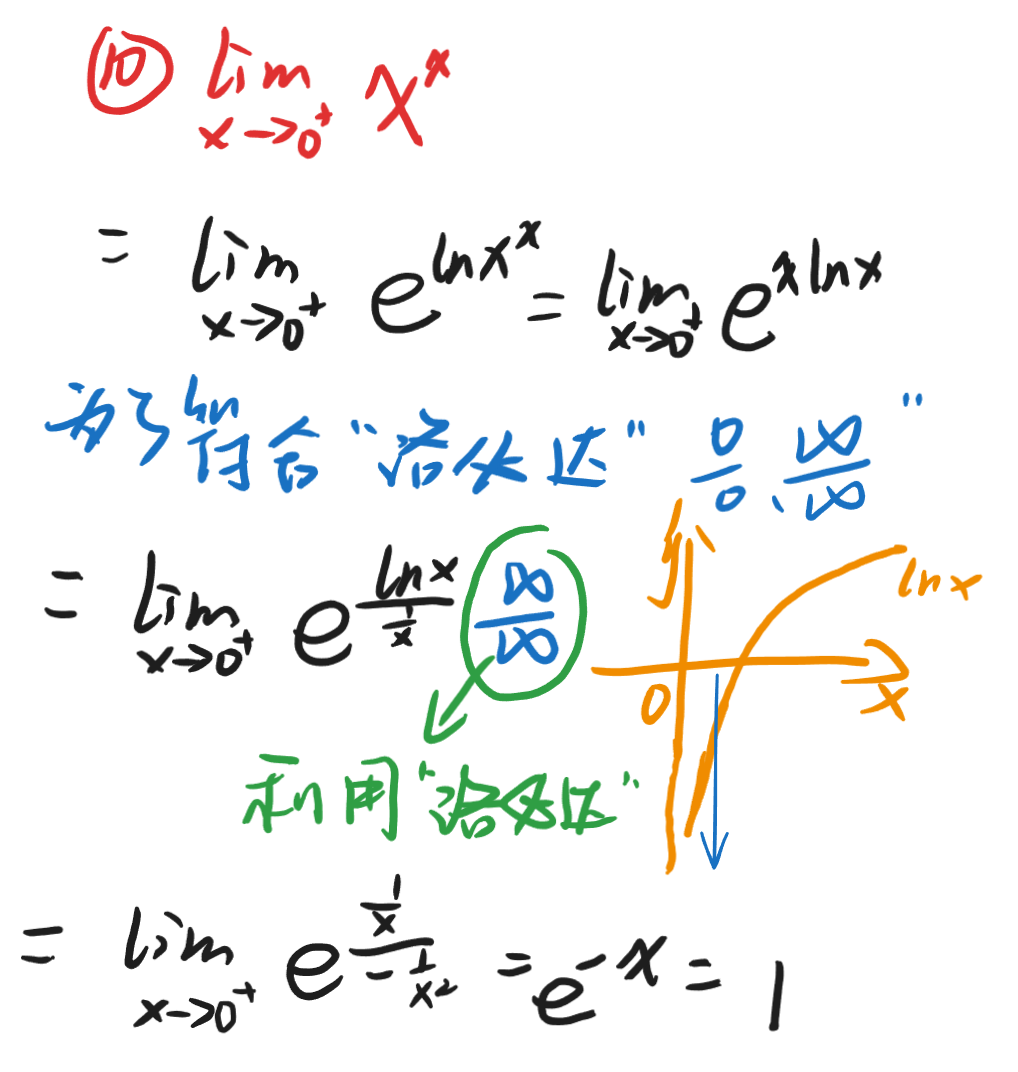 ⑩ lim x→0⁺ xˣ
= lim x→0⁺ e^(ln xˣ) = lim x→0⁺ e^(x ln x)
为了符合“洛必达” 0/0、∞/∞ ”
= lim x→0⁺ e^(ln x / (1/x)) ∞/∞
y
ln x
0 x
利用“洛必达”
= lim x→0⁺ e^((1/x) / (-1/x²)) = e^(-x) = 1